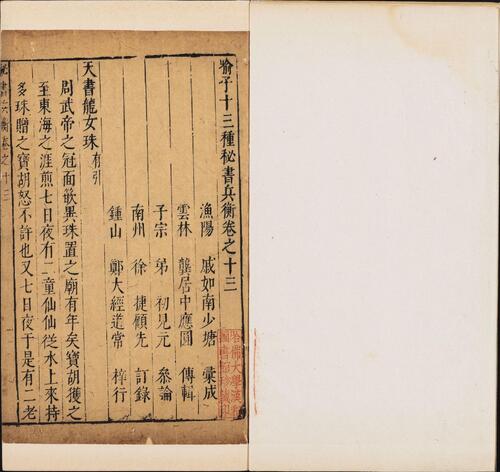 喻子十三種秘書兵衡卷之十三
漁陽 戚如南少塘 彙成
雲林 龔居中應圓 傳輯
子宗 弟 初見元 叅論
南州 徐 捷顧先 訂錄
鍾山 鄭大經道常 梓行
天書龍女珠有引
周武帝之冠面嵌異珠置之廟有年矣寶胡獲之
至東海之涯煎七日夜有二童仙仙從水上來持
多珠贈之寶胡怒不許也又七日夜于是有二老
秘書兵衡卷之十三
哈佛大學漢和圖書館珍藏印